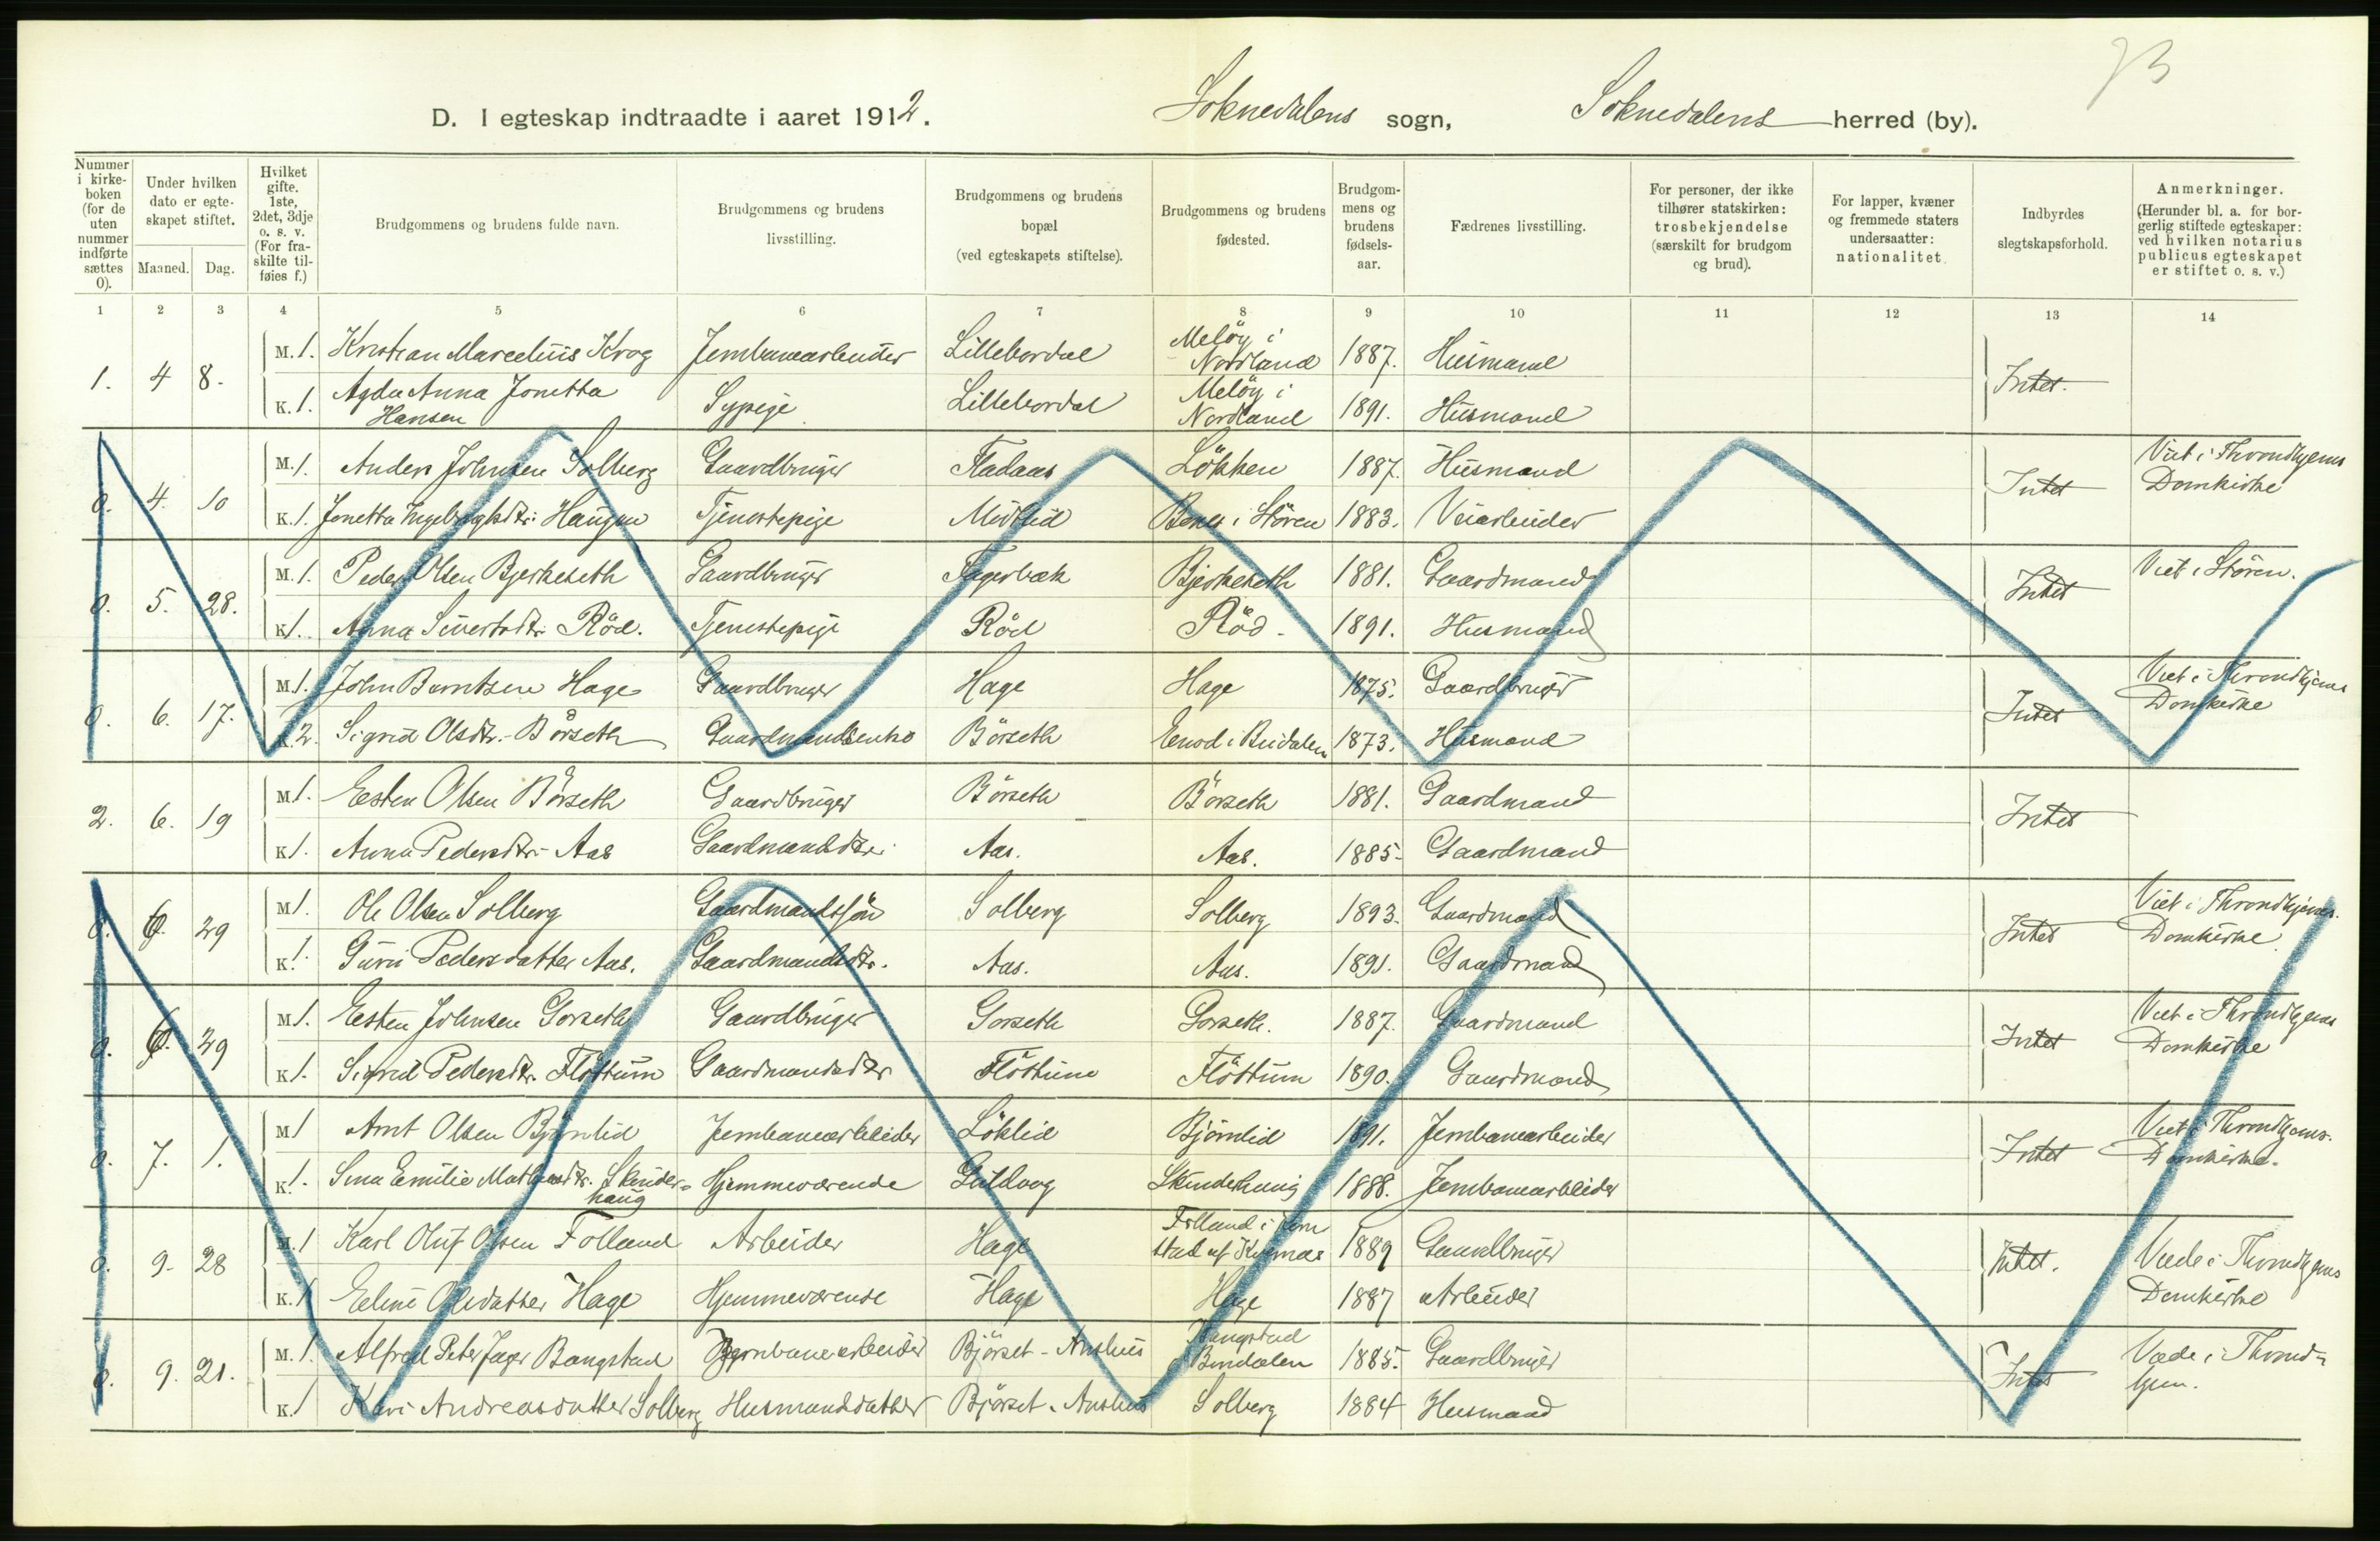 73
D. I egteskap indtraadte i aaret 1912. Soknedalens sogn, Soknedalens herred (by).
Nummer i kirkeboken (for de uten nummer indførte sættes 0).
Under hvilken dato er egteskapet stiftet.
Maaned. Dag.
Hvilket gifte. 1ste, 2det, 3dje o. s. v. (For fraskilte tilføies f.)
Brudgommens og brudens fulde navn.
Brudgommens og brudens livsstilling.
Brudgommens og brudens bopæl (ved egteskapets stiftelse).
Brudgommens og brudens fødested.
Brudgommens og brudens fødselsaar.
Fædrenes livsstilling.
For personer, der ikke tilhører statskirken: trosbekjendelse (særskilt for brudgom og brud).
For lapper, kvæner og fremmede staters undersaatter: nationalitet.
Indbyrdes slegtskapsforhold.
Anmerkninger. (Herunder bl. a. for borgerlig stiftede egteskaper: ved hvilken notarius publicus egteskapet er stiftet o. s. v.)
1 2 3 4 5 6 7 8 9 10 11 12 13 14
1. 4 8. M. 1. Kristian Marcelius Krog Jernbanearbeider Lillebordal Meløy i Nordland 1887. Husmand Intet.
K. 1. Agda Anna Jonetta Hansen Sypige Lillebordal Meløy i Nordland 1891. Husmand
0. 4. 10 M. 1. Anders Johnsen Solberg Gaardbruger Fladaas Løkken 1887. Husmand Intet Viet i Throndhjems Domkirke
K. 1. Jonetta Ingebrigtsdtr. Haugen Tjenestepige Midtlid Bones i Støren 1883. Veiarbeider
0. 5. 28. M. 1. Peder Olsen Bjerkeseth Gaardbruger Fagerbæk Bjerkeseth 1881. Gaardmand Intet Viet i Støren.
K. 1. Anna Sivertsdtr. Rød. Tjenestepige Rød Rød. 1891. Husmand
0. 6. 17. M. 1. John Berntsen Hage Gaardbruger Hage Hage 1875. Gaardbruger Intet Viet i Throndhjems Domkirke
K. 2. Sigrid Olsdtr. Børseth Gaardmandsenke Børseth Enod i Budalen 1873. Husmand
2. 6. 19 M. 1. Esten Olsen Børseth Gaardbruger Børseth Børseth 1881. Gaardmand Intet
K. 1. Anna Pedersdtr. Aas Gaardmandsdtr. Aas. Aas. 1885. Gaardmand
0. 6. 29 M. 1. Ole Olsen Solberg Gaardmandssøn Solberg Solberg 1893. Gaardmand Intet Viet i Throndhjems Domkirke
K. 1. Guri Pedersdatter Aas. Gaardmandsdtr. Aas. Aas. 1891. Gaardmand
0. 6. 29 M. 1. Esten Johnsen Gorseth Gaardbruger Gorseth Gorseth. 1887. Gaardmand Intet Viet i Throndhjems Domkirke
K. 1. Sigrid Pedersdtr. Fløttum Gaardmandsdtr Fløttum Fløttum 1890. Gaardmand
0. 7. 1. M. 1 Arnt Olsen Bjørnlid Jernbanearbeider Løklid Bjørnlid 1891. Jernbanearbeider Intet Viet i Throndhjems Domkirke.
K. 1. Sina Emilie Mathisdtr. Skinderhaug Hjemmeværende Guldvog Skinderhaug 1888. Jernbanearbeider
0. 9. 28 M. 1 Karl Oluf Olsen Folland Arbeider Hage Folland i 1889 Gaardbruger Intet. Viede i Throndhjems Domkirke
K. 1 Eline Olsdatter Hage Hjemmeværende Hage Hage 1887 Arbeider
0. 9. 21. M. 1. Alfred Peter Jager Bangstad Jernbanearbeider Bjørset - Anshus Bangstad Bindalen 1885. Gaardbruger Intet Viede i Throndhjem.
K. 1 Kari Andreasdatter Solberg Husmandsdatter Bjørset - Anshus Solberg 1884 Husmand